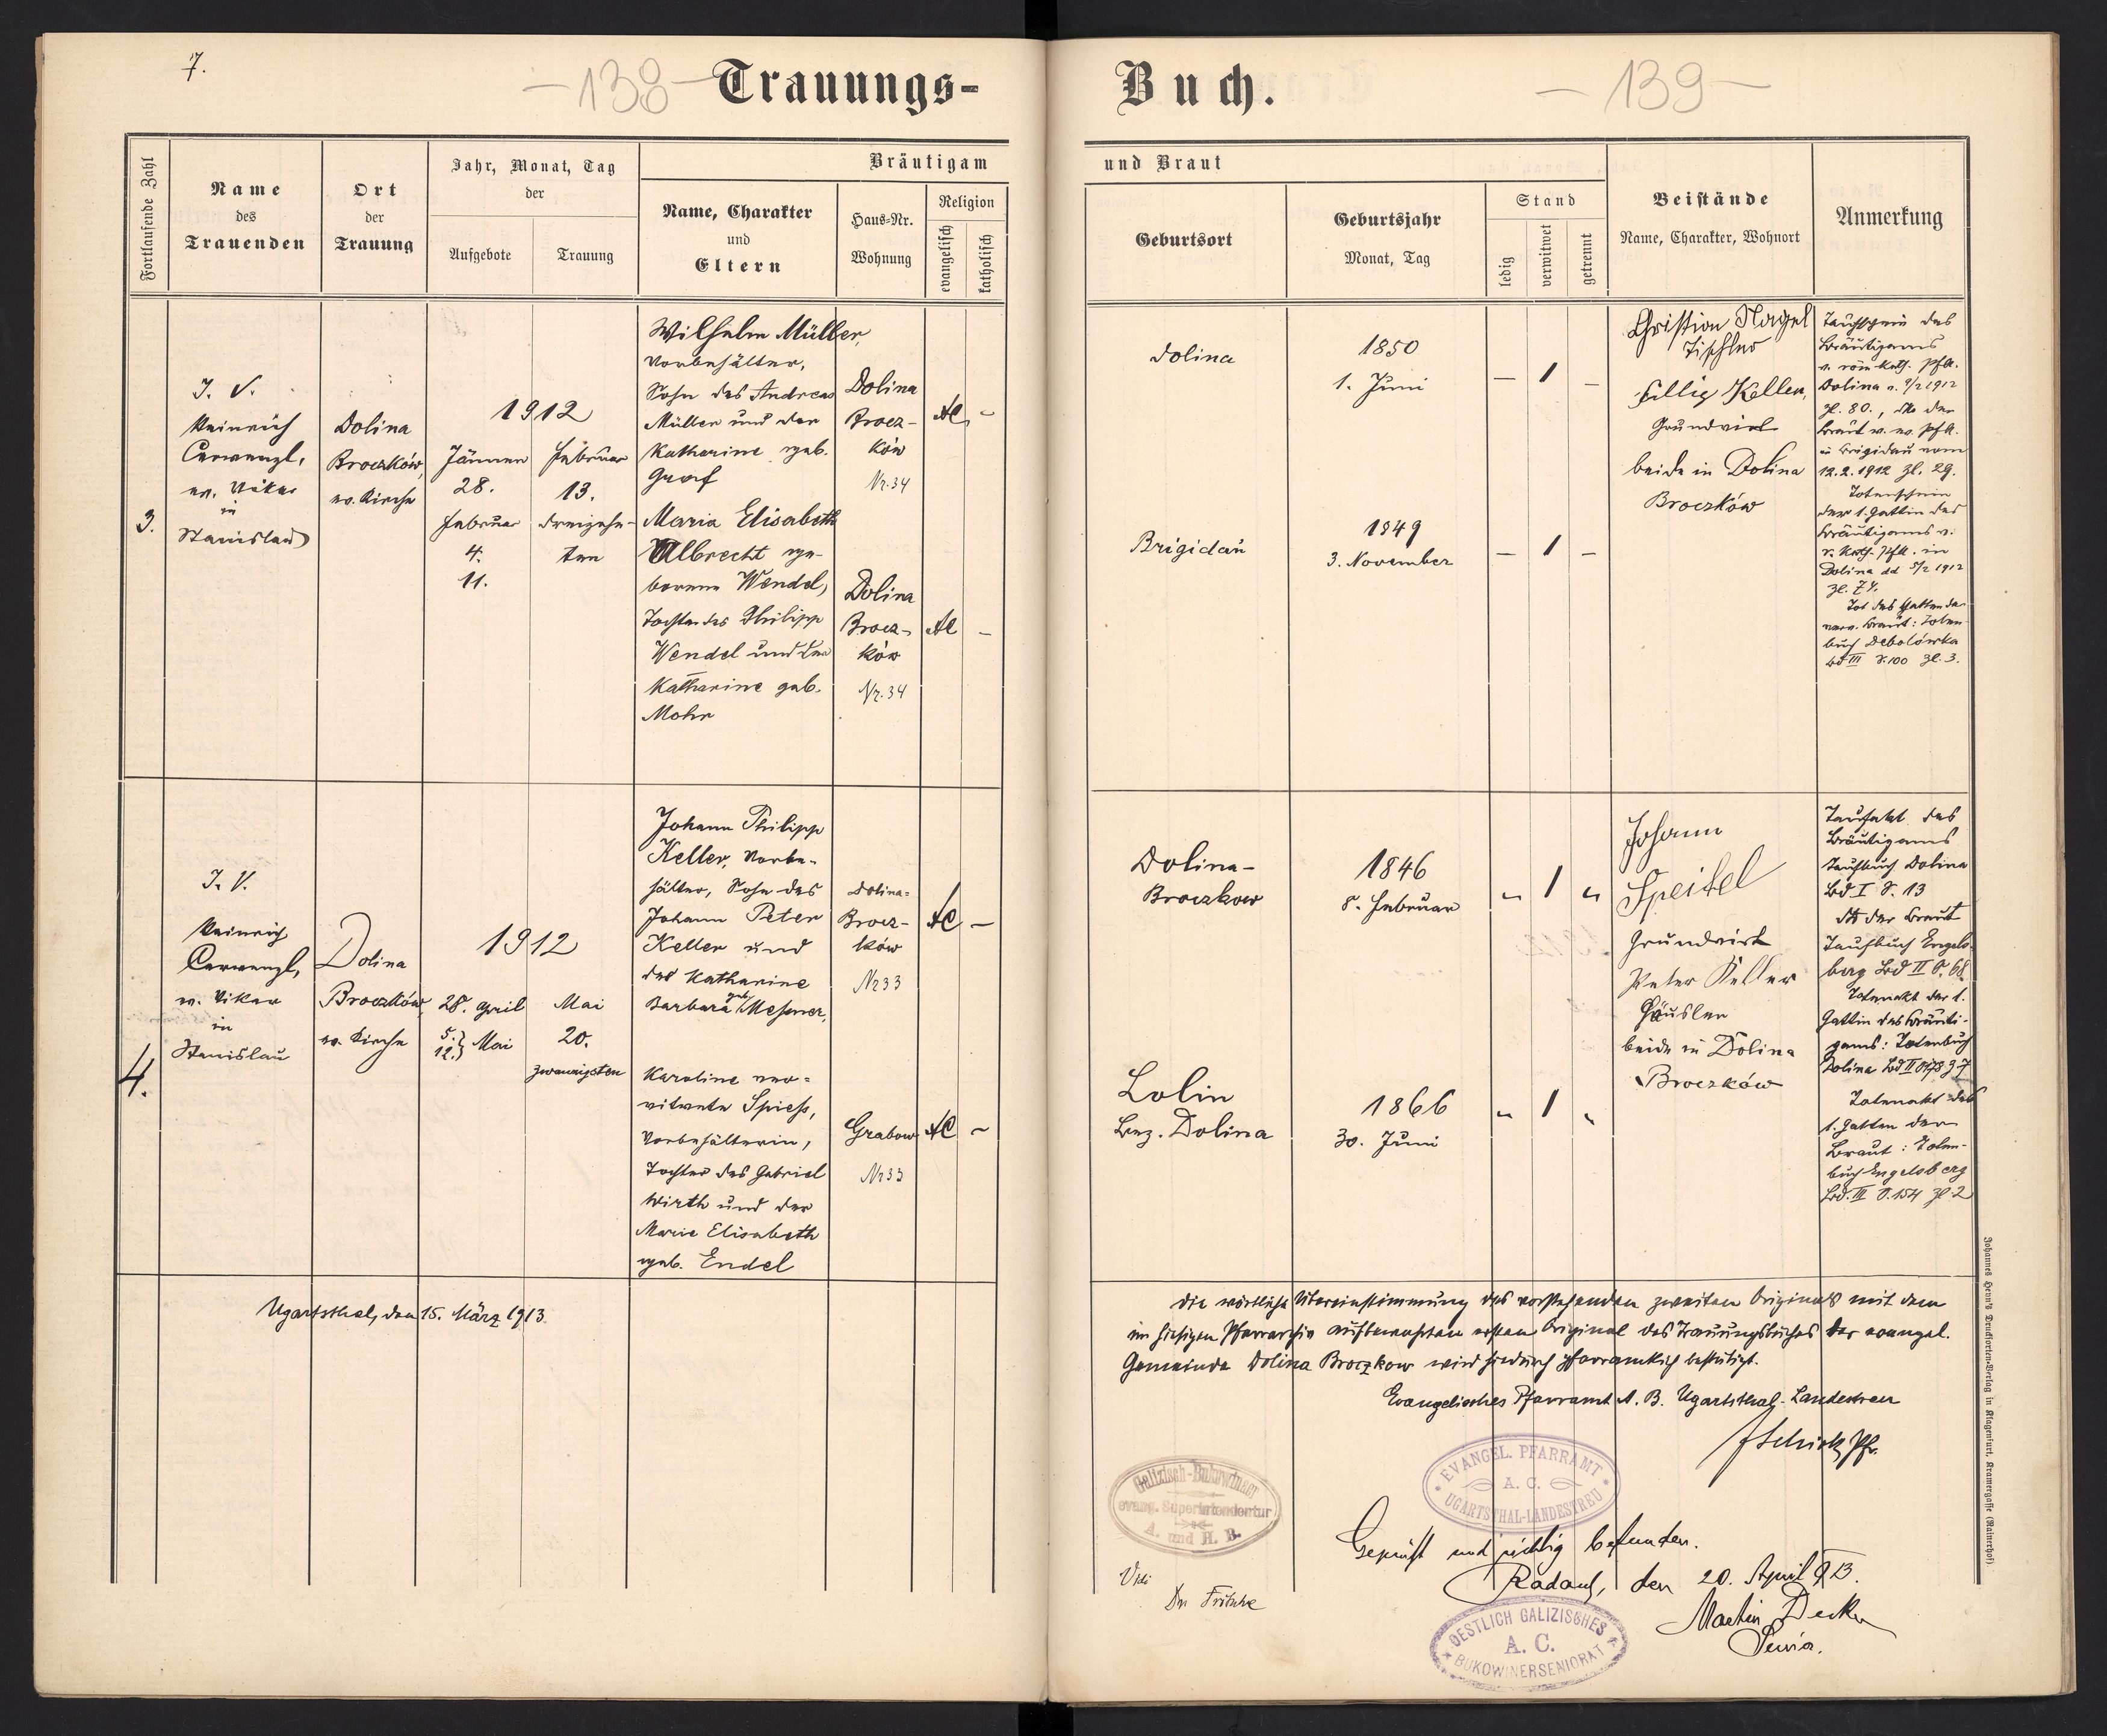 7.
-138-
Trauungs-
Fortlaufende Zahl
Name
des
Trauenden
Ort
der
Trauung
Jahr, Monat, Tag
der
Aufgebote
Trauung
Bräutigam
Name, Charakter
und
Eltern
Haus-Nr.
Wohnung
Religion
evangelisch
katholisch
3.
I. V.
Heinrich
Cerwenzl,
ev. Vikar
in
Stanislau
Dolina
Broczków,
ev. Kirche
1912
Jänner
28.
Februar
4.
11.
Februar
13.
dreizehn-
ten
Wilhelm Müller,
Vorbehälter,
Sohn des Andreas
Müller und der
Katharine geb.
Graf
Dolina
Brocz-
ków
Nr. 34
AC
-
Maria Elisabeth
Albrecht ge-
borene Wendel,
Tochter des Philipp
Wendel und der
Katharine geb.
Mohr
Dolina
Brocz-
ków
Nr. 34
AC
-
4.
I. V.
Heinrich
Cerwenzl,
ev. Vikar
in
Stanislau
Dolina
Broczków
ev. Kirche
1912
28. April
5. } Mai
12. }
Mai
20.
zwanzigsten
Johann Philipp
Keller, Vorbe-
hälter, Sohn des
Johann Peter
Keller und
der Katharine
Barbara geb. Messner,
Dolina-
Brocz-
ków
Nr 33
AC
-
Karoline ver-
witwete Spiess,
Vorbehälterin,
Tochter des Gabriel
Wirth und der
Marie Elisabeth
geb. Endel
Grabow
Nr 33
AC
-
Ugartsthal, den 15. März 1913.
Buch.
-139-
und Braut
Geburtsort
Geburtsjahr
Monat, Tag
Stand
ledig
verwitwet
getrennt
Beistände
Name, Charakter, Wohnort
Anmerkung
Dolina
1850
1. Juni
- 1 -
Brigidau
1849
3. November
- 1 -
Christian Nagel
Tischler
Keller,
Grundwirt
beide in Dolina
Broczków
Taufschein des
Bräutigams
v. röm. kath. PfA.
Dolina v. 9/2 1912
Zl. 80., der
Braut v. ev. PfA.
in Brigidau vom
12.2.1912 Zl. 29.
Totenschein
der 1. Gattin des
Bräutigams v.
r. kath. PfA. in
Dolina dd 5/2 1912
Zl. 74.
Tod des Gatten der
verw. Braut: Toten-
buch Debolówka
Bd III S. 100 Zl. 3.
Dolina-
Broczkow
1846
8. Februar
" 1 "
Lolin
Bez. Dolina
1866
30. Juni
" 1 "
Johann
Speitel
Grundwirt
Peter Keller
Häusler
beide in Dolina
Broczków
Taufakt des
Bräutigams
Taufbuch Dolina
Bd I S. 13
der Braut
Taufbuch Engels-
berg Bd II S. 68.
Totenakt der 1.
Gattin des Bräuti-
gams: Totenbuch
Dolina Bd II
Totenakt des
1. Gatten der
Braut: Toten-
buch Engelsberg
Bd. III S. 154 Zl 2
Die wörtliche Übereinstimmung des vorstehenden zweiten Originals mit dem
im hiesigen Pfarrarchiv aufbewahrten ersten Original des Trauungsbuches der evangel.
Gemeinde Dolina Broczkow wird hiedurch pfarramtlich bestätigt.
Evangelisches Pfarramt A. B. Ugartsthal-Landestreu
Pfr.
EVANGEL. PFARRAMT
A. C.
UGARTSTHAL-LANDESTREU
Galizisch-Bukowinaer
evang. Superintendentur
A. und H. B.
Vidi
Dr. Fritsche
Geprüft und richtig befunden.
Radautz, den 20. April 913.
Martin Decker
Senior.
OESTLICH GALIZISCHES
A. C.
BUKOWINERSENIORAT
Johannes Heyn's Drucksorten-Verlag in Klagenfurt, Kramergasse (Rainerhof).